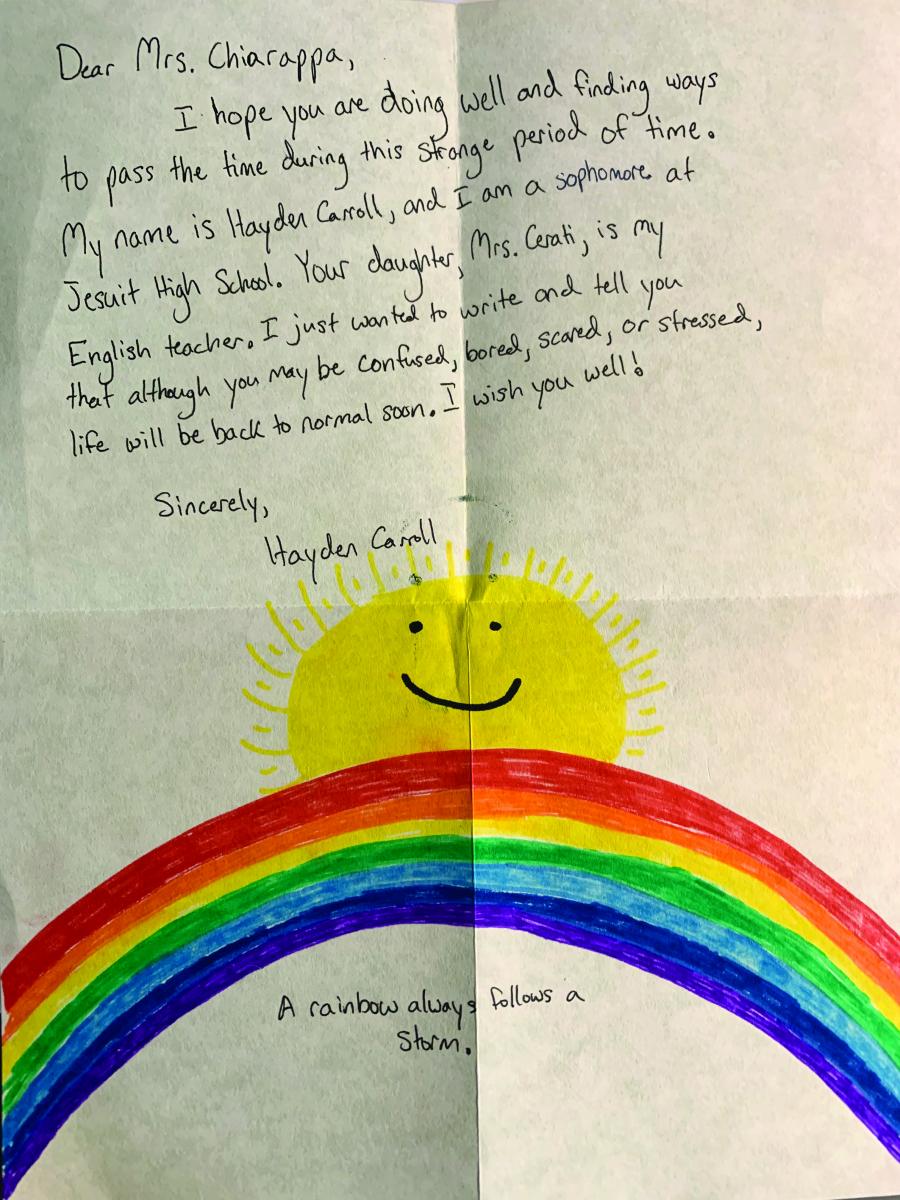 Dear Mrs. Chiarappa,
I hope you are doing well and finding ways
to pass the time during this strange period of time.
My name is Hayden Carroll, and I am a sophomore at
Jesuit High School. Your daughter, Mrs. Cerati, is my
English teacher. I just wanted to write and tell you
that although you may be confused, bored, scared, or stressed,
life will be back to normal soon. I wish you well!
Sincerely,
Hayden Carroll
A rainbow always follows a
storm.